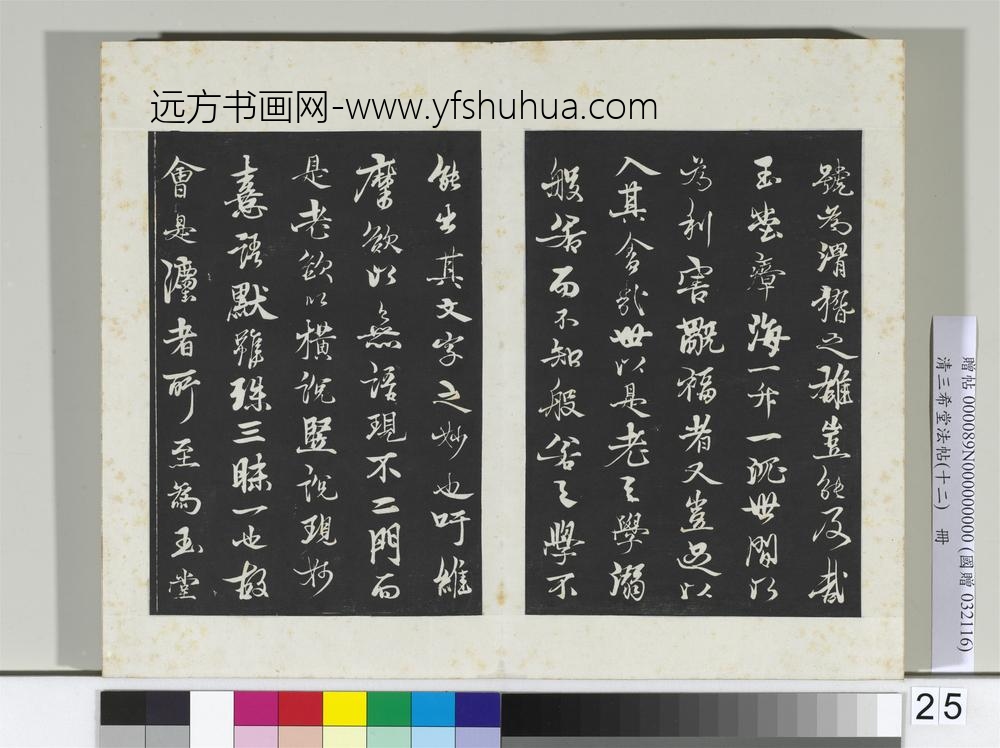 远方书画网-www.yfshuhua.com
號為滑稽之雄豈能及哉
玉堂瘴海一升一沉世間以
為利害旤福者又豈足以
入其舍哉世以是老之學溺
般若而不知般若之學不
能生其文字之妙也吁維
摩欲以無語現不二門而
是老欲以橫說豎說現妙
意語默雖殊三昧一也故
會是者所至為玉堂
贈帖 0000089N000000000 (國贈 032116)
清三希堂法帖(十二) 冊
25